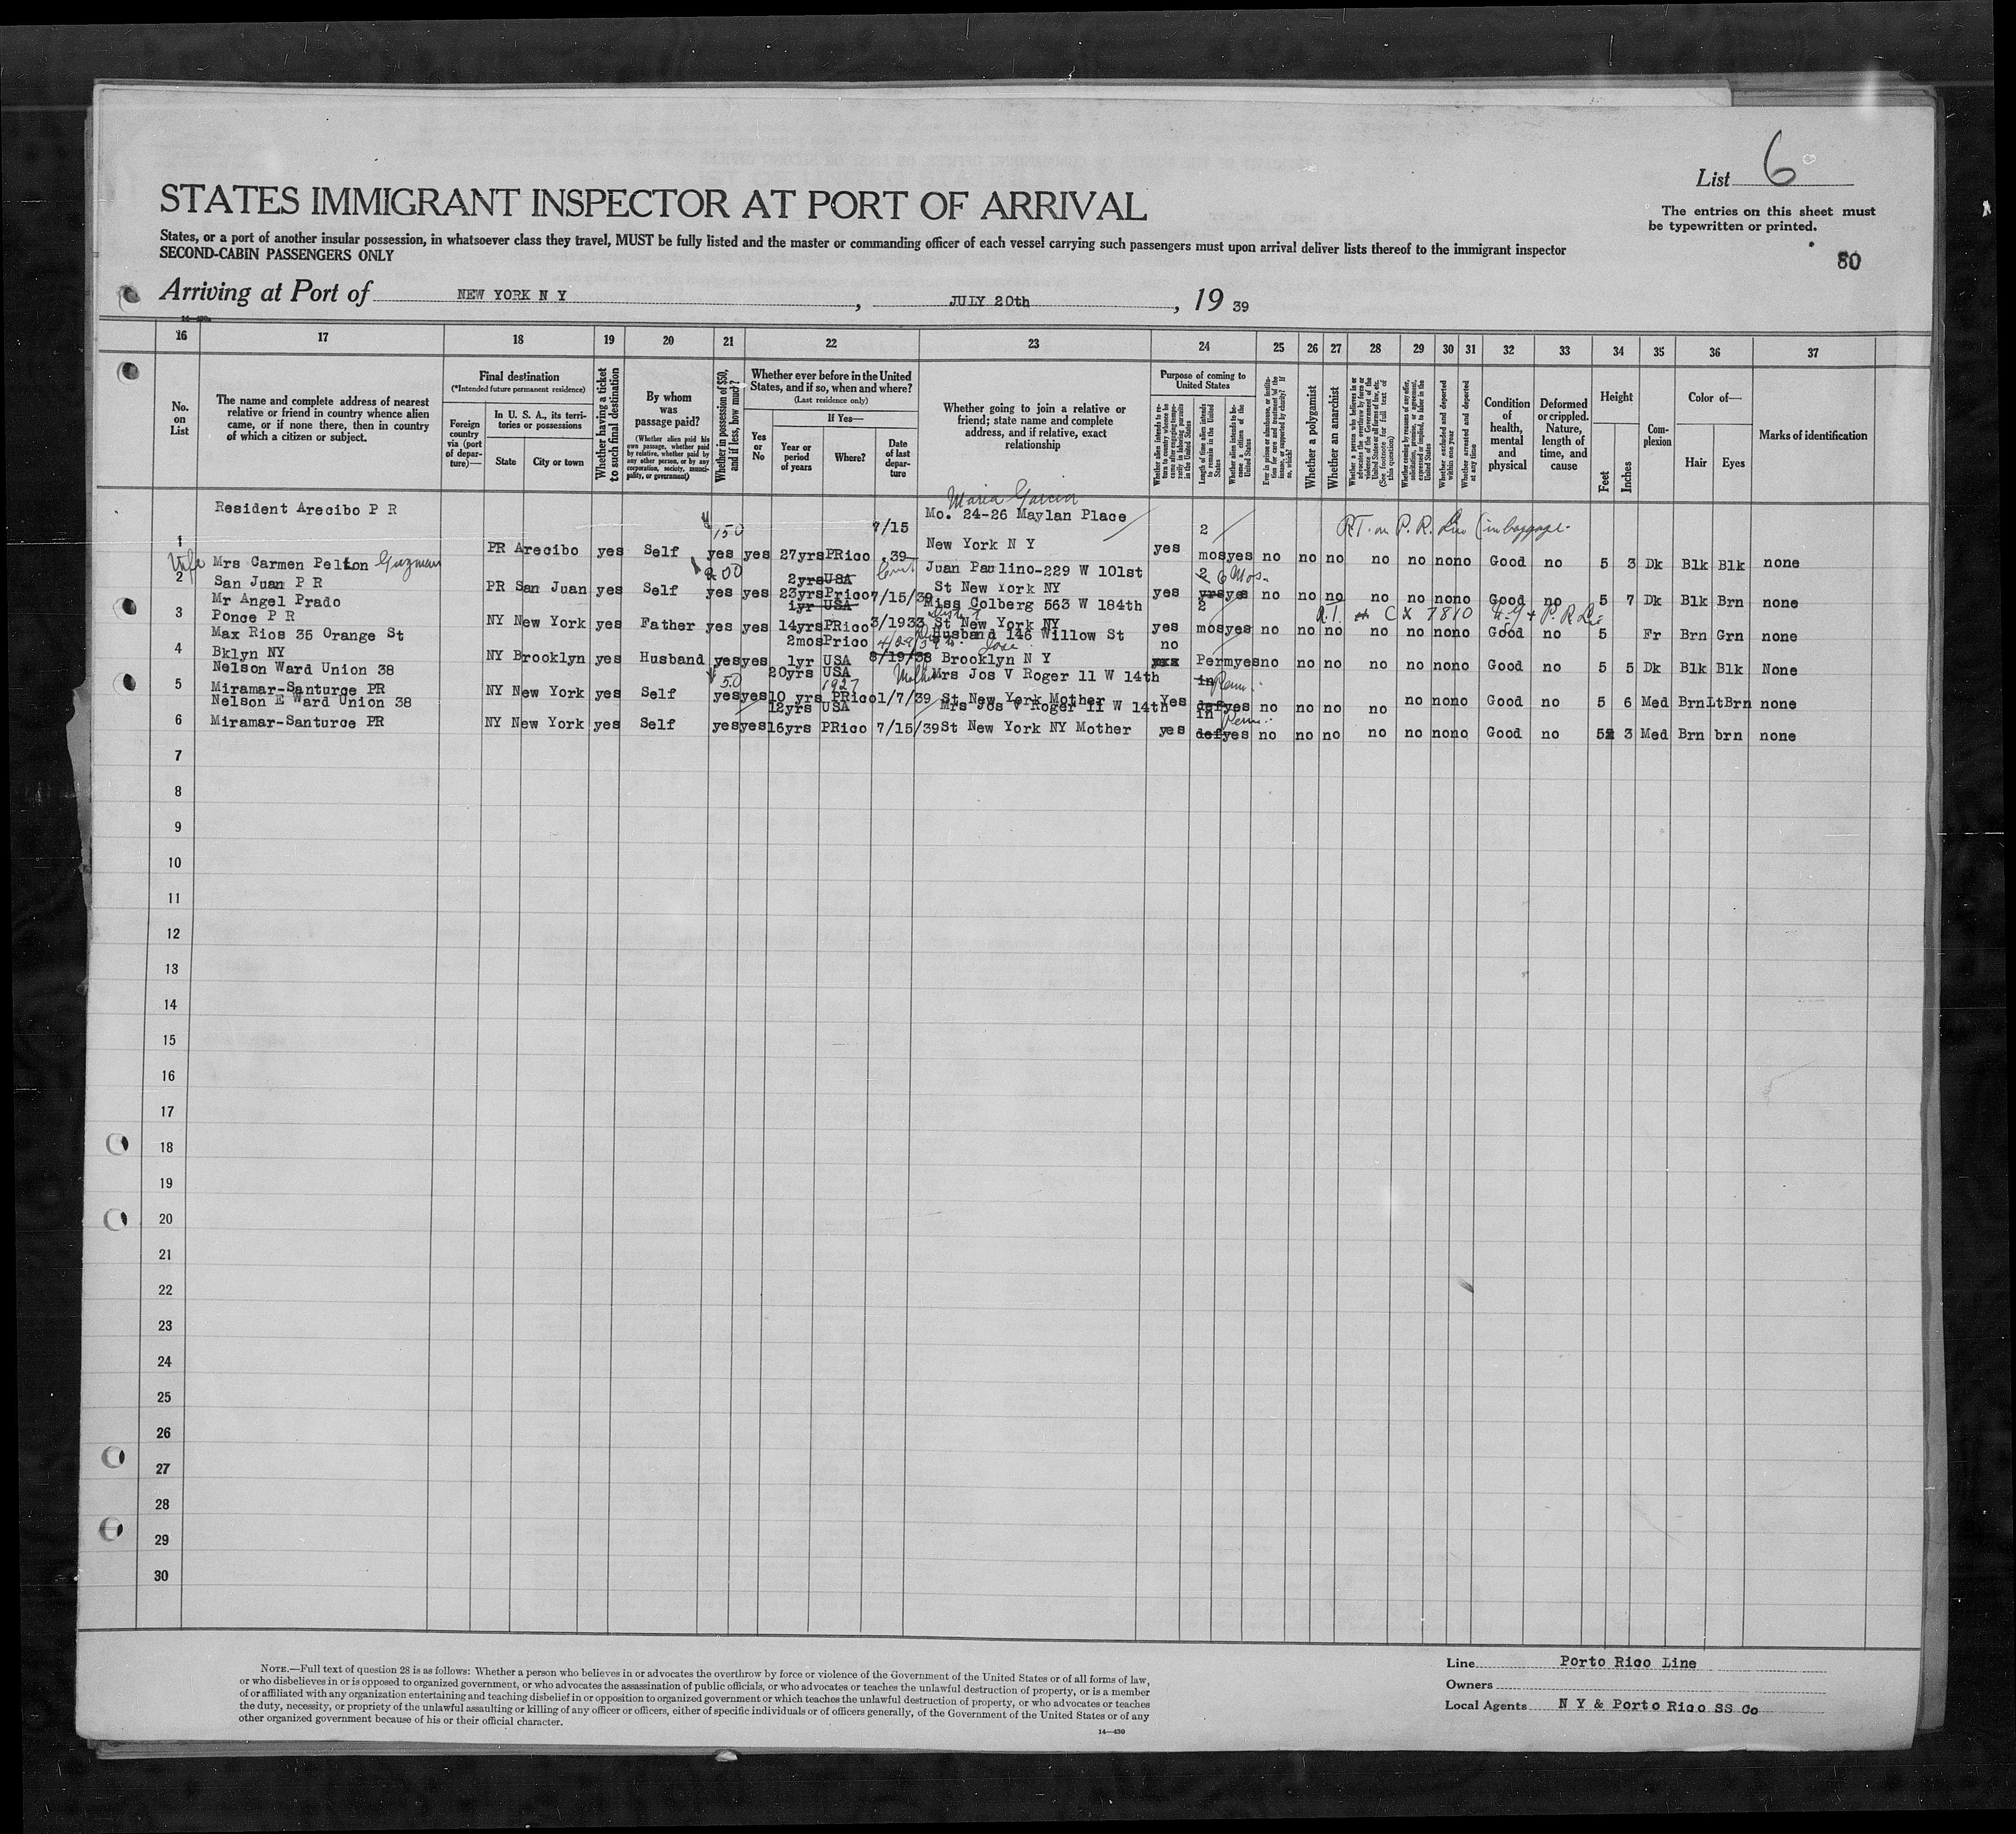 List 6
The entries on this sheet must
be typewritten or printed.
80
STATES IMMIGRANT INSPECTOR AT PORT OF ARRIVAL
States, or a port of another insular possession, in whatsoever class they travel, MUST be fully listed and the master or commanding officer of each vessel carrying such passengers must upon arrival deliver lists thereof to the immigrant inspector
SECOND-CABIN PASSENGERS ONLY
Arriving at Port of NEW YORK N Y , JULY 20th , 19 39
16 17 18 19 20 21 22 23 24 25 26 27 28 29 30 31 32 33 34 35 36 37
No. on List
The name and complete address of nearest
relative or friend in country whence alien
came, or if none there, then in country
of which a citizen or subject.
Final destination
(*Intended future permanent residence)
Foreign country via (port of departure)—
In U. S. A., its territories or possessions
State City or town
Whether having a ticket to such final destination
By whom was passage paid?
(Whether alien paid his own passage, whether paid by relative, whether paid by any other person, or by any corporation, society, municipality, or government)
Whether in possession of $50, and if less, how much?
Whether ever before in the United
States, and if so, when and where?
(Last residence only)
Yes or No
If Yes—
Year or period of years
Where?
Date of last departure
Whether going to join a relative or
friend; state name and complete
address, and if relative, exact
relationship
Purpose of coming to
United States
Length of time alien intends to remain in the United States
Whether alien intends to become a citizen of the United States
Whether a polygamist
Whether an anarchist
Whether excluded and deported within one year
Whether arrested and deported at any time
Condition of health, mental and physical
Deformed or crippled. Nature, length of time, and cause
Height
Feet Inches
Complexion
Color of—
Hair Eyes
Marks of identification
Maria Garcia
Resident Arecibo P R 150 7/15 Mo. 24-26 Maylan Place 2
1 PR Arecibo yes Self yes yes 27yrs PRico 39 New York N Y yes mos yes no no no no no no no Good no 5 3 Dk Blk Blk none
Wife Mrs Carmen Pelton Guzman 200 2yrs USA Juan Paulino-229 W 101st 2 6 Mos.
2 San Juan P R PR San Juan yes Self yes yes 23yrs Prico 7/15/39 St New York NY yes yrs yes no no no no no no no Good no 5 7 Dk Blk Brn none
Mr Angel Prado 1yr USA Miss Colberg 563 W 184th 2
3 Ponce P R NY New York yes Father yes yes 14yrs PRico 3/1933 St New York NY yes mos yes no no no no no no no Good no 5 Fr Brn Grn none
Max Rios 35 Orange St 2mos Prico Husband 146 Willow St no
4 Bklyn NY NY Brooklyn yes Husband yes yes 1yr USA 8/19/38 Brooklyn N Y Perm yes no no no no no no no Good no 5 5 Dk Blk Blk None
Nelson Ward Union 38 50 20yrs USA 1927 Mother Mrs Jos V Roger 11 W 14th in Perm.
5 Miramar-Santurce PR NY New York yes Self yes yes 10 yrs PRico 1/7/39 St New York Mother Yes def yes no no no no no no no Good no 5 6 Med Brn LtBrn none
Nelson E Ward Union 38 12yrs USA Mrs Jos V Roger 11 W 14th in Perm.
6 Miramar-Santurce PR NY New York yes Self yes yes 16yrs PRico 7/15/39 St New York NY Mother yes def yes no no no no no no no Good no 5 3 Med Brn brn none
7
8
9
10
11
12
13
14
15
16
17
18
19
20
21
22
23
24
25
26
27
28
29
30
NOTE.—Full text of question 28 is as follows: Whether a person who believes in or advocates the overthrow by force or violence of the Government of the United States or of all forms of law,
or who disbelieves in or is opposed to organized government, or who advocates the assassination of public officials, or who advocates or teaches the unlawful destruction of property, or is a member
of or affiliated with any organization entertaining and teaching disbelief in or opposition to organized government or which teaches the unlawful destruction of property, or who advocates or teaches
the duty, necessity, or propriety of the unlawful assaulting or killing of any officer or officers, either of specific individuals or of officers generally, of the Government of the United States or of any
other organized government because of his or their official character.
14—430
Line Porto Rico Line
Owners
Local Agents N Y & Porto Rico SS Co